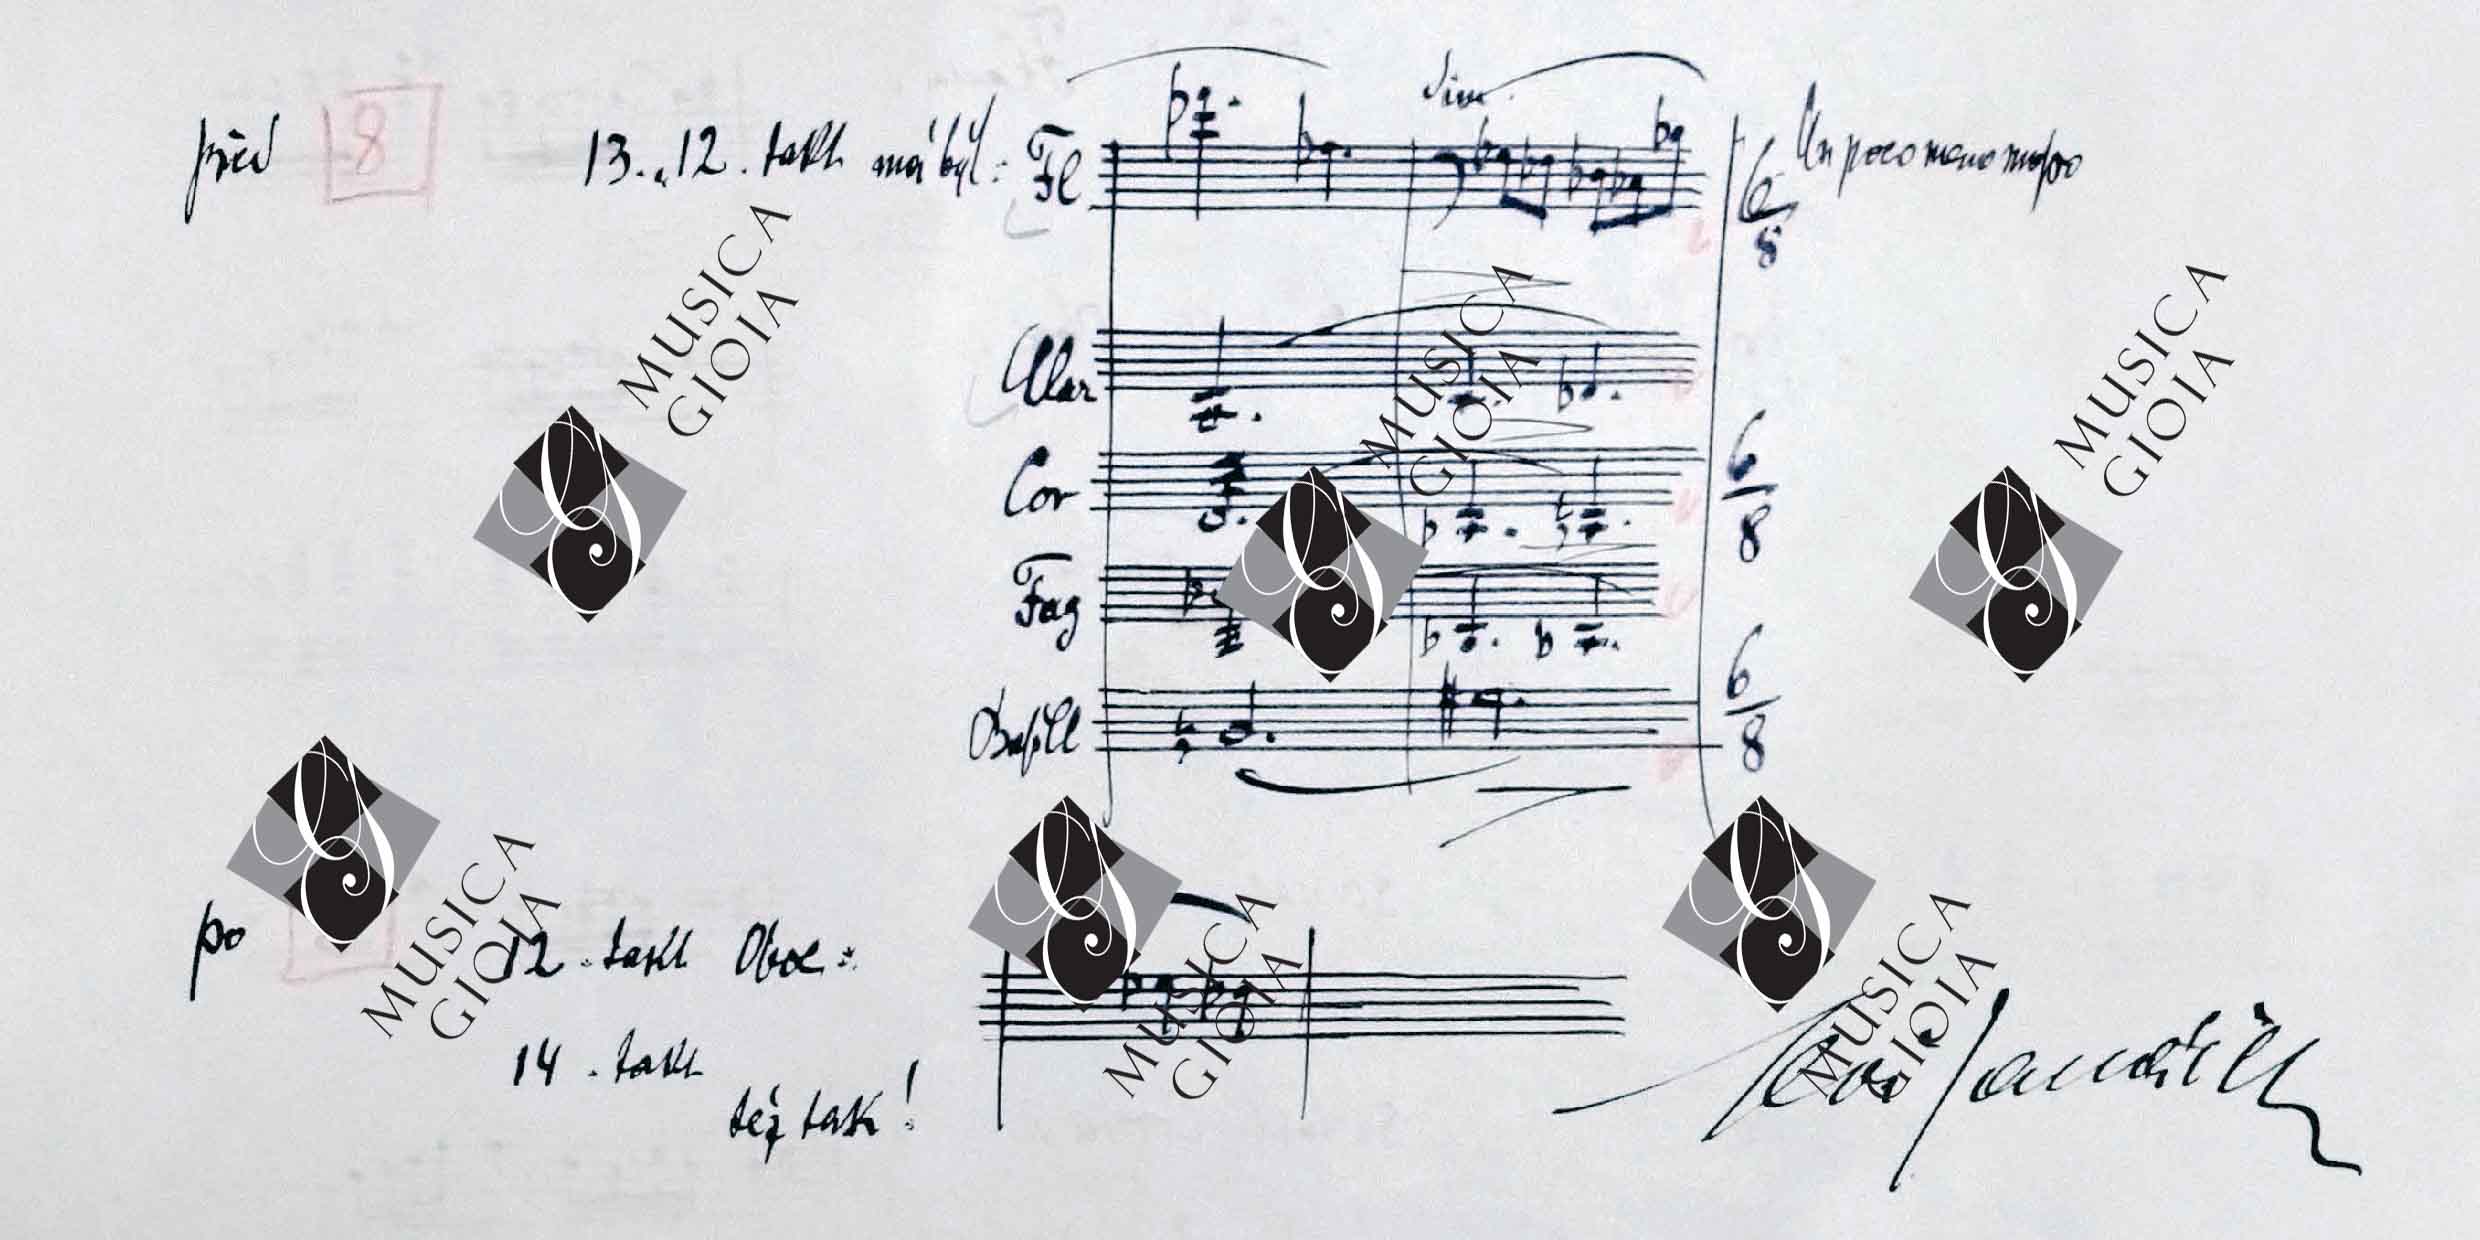 před 8 13. „12. takt má být: Fl dim. 6/8 Un poco meno mosso
Clar
Cor 6/8
Fag
Bascl 6/8
po 12. takt Oboe:
14. takt
též tak!
Leoš Janáček
MUSICA
GIOIA
MUSICA
GIOIA
MUSICA
GIOIA
MUSICA
GIOIA
MUSICA
GIOIA
MUSICA
GIOIA